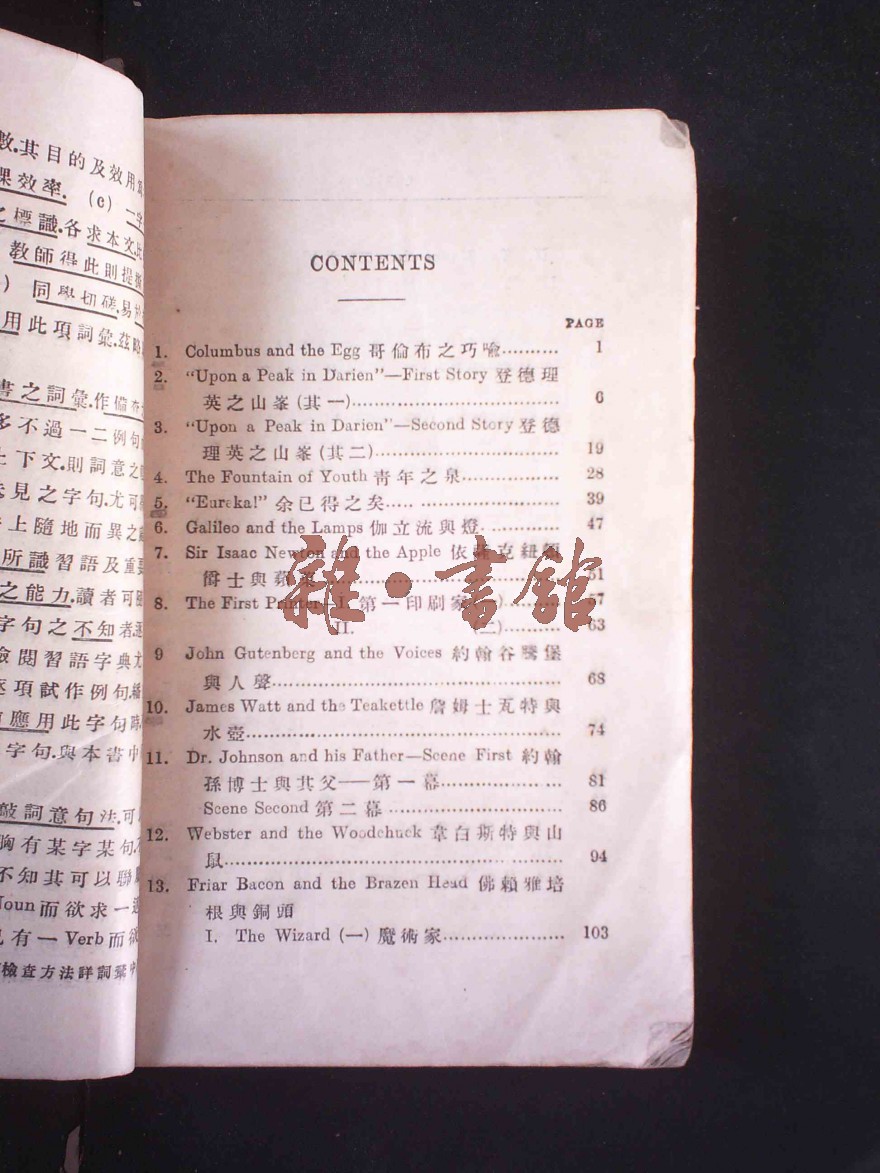 數.其目的及效用
課效率. (c) 二字
之標識.各求本文.此
教師得此則提
) 同學切磋.易
用此項詞彙.茲略
書之詞彙.作備
多不過一二例句
上下文.則詞意之
見之字句.尤可
上隨地而異之
所識習語及重要
之能力.讀者可
字句之不知者.逐
檢閱習語字典尤
逐項試作例句.
應用此字句
字句.與本書中
敲詞意句法.可
胸有某字某句.
不知其可以聯
Noun而欲求一
已有一 Verb而欲
檢查方法詳詞彙中
CONTENTS
PAGE
1. Columbus and the Egg 哥倫布之巧喩.......... 1
2. “Upon a Peak in Darien”—First Story 登德理
英之山峯(其一).......... 6
3. “Upon a Peak in Darien”—Second Story 登德
理英之山峯(其二).......... 19
4. The Fountain of Youth 青年之泉.......... 28
5. “Eureka!” 余已得之矣.......... 39
6. Galileo and the Lamps 伽立流與燈.......... 47
7. Sir Isaac Newton and the Apple 依薩克紐頓
爵士與蘋果.......... 51
8. The First Printer—I. 第一印刷家(一).......... 57
II. (二).......... 63
9 John Gutenberg and the Voices 約翰谷騰堡
與人聲.......... 68
10. James Watt and the Teakettle 詹姆士瓦特與
水壺.......... 74
11. Dr. Johnson and his Father—Scene First 約翰
孫博士與其父——第一幕.......... 81
Scene Second 第二幕.......... 86
12. Webster and the Woodchuck 韋白斯特與山
鼠.......... 94
13. Friar Bacon and the Brazen Head 佛賴雅培
根與銅頭
I. The Wizard (一) 魔術家.......... 103
雜·書館